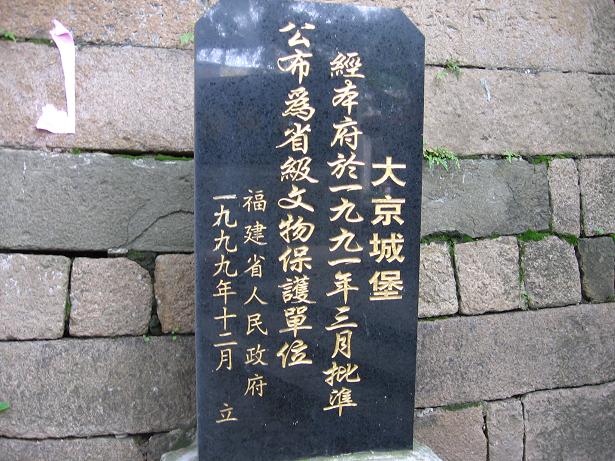 大京城堡
經本府於一九九一年三月批準
公布爲省級文物保護單位
福建省人民政府
一九九九年十二月 立